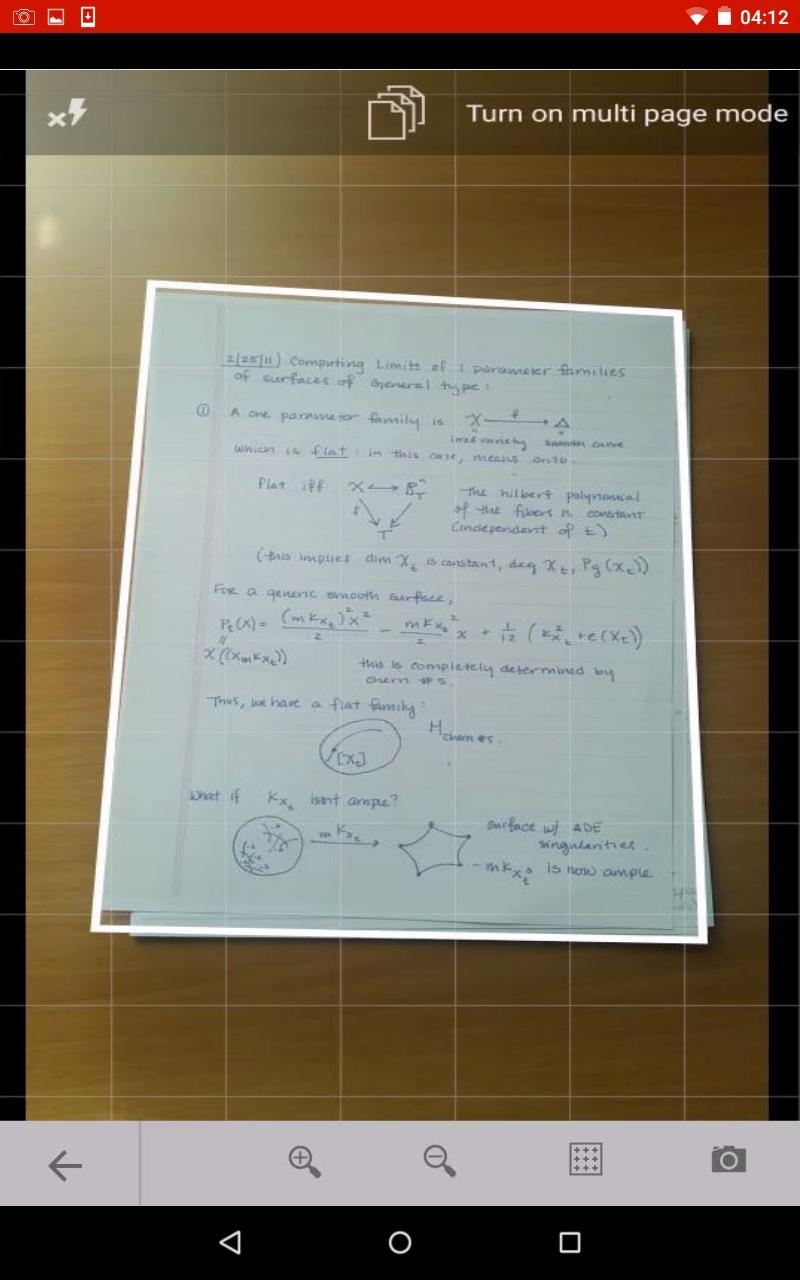 04:12
Turn on multi page mode
2/25/11) Computing Limits of 1 parameter families
of surfaces of General type:
① A one parameter family is X —f→ Δ
irred variety smooth curve
which is flat: in this case, means onto.
flat iff X ↔ ℙⁿ_T the hilbert polynomial
f of the fibers is constant
T (independent of t)
(this implies dim X_t is constant, deg X_t, Pg(X_t))
For a generic smooth surface,
P_t(X) = (mK_{X_t})²x²/2 − mK_{X_t}²/2 x + 1/12 (K²_{X_t} + e(X_t))
χ((X_mK_{X_t}))
this is completely determined by
chern #s.
Thus, we have a flat family:
[X_t] M_{chern #s}.
What if K_{X_t} isn't ample?
mK_{X_t} surface w/ ADE
singularities.
-mK_{X_t} is now ample